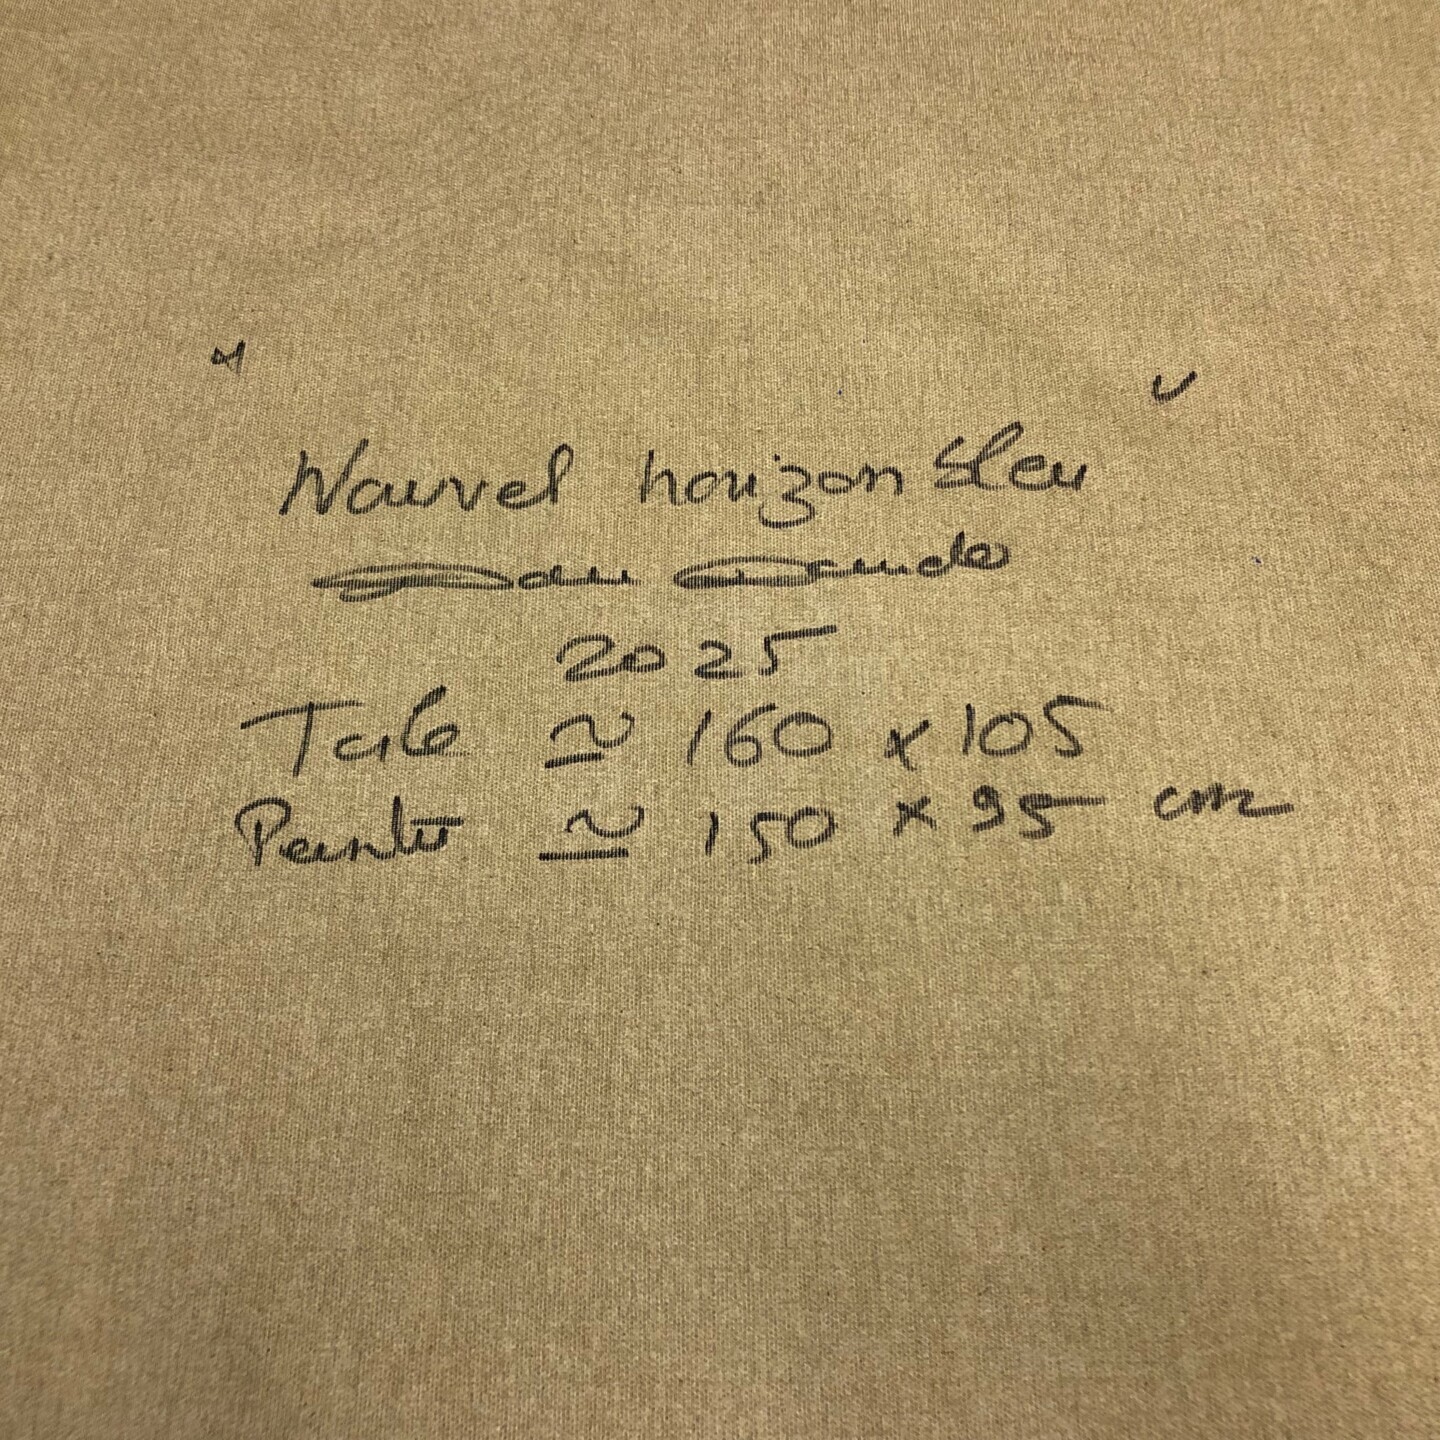 Nouvel horizon bleu
2025
Toile ≃ 160 x 105
Peinte ≃ 150 x 95 cm